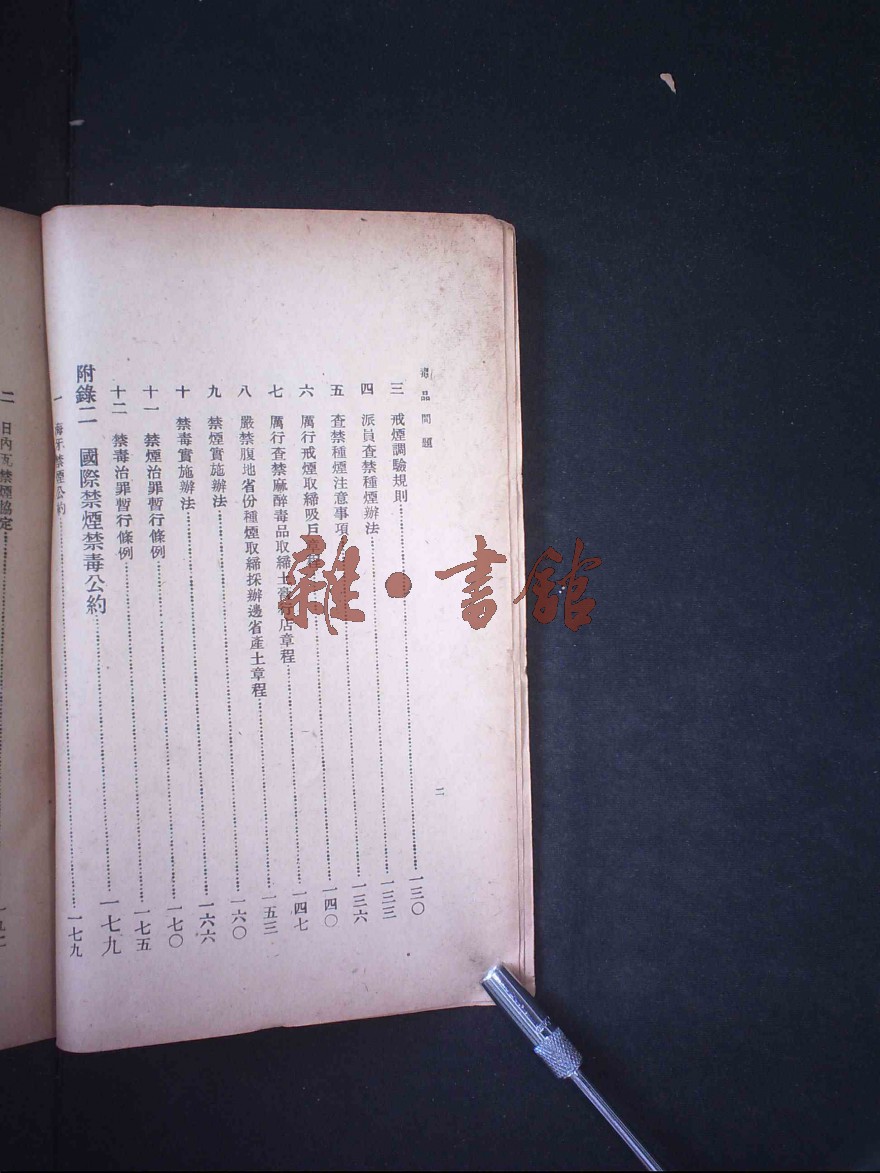 毒品問題 二
三 戒煙調驗規則……一三〇
四 派員查禁種煙辦法……一三三
五 查禁種煙注意事項……一三六
六 厲行戒煙取締吸戶章程……一四〇
七 厲行查禁麻醉毒品取締土膏行店章程……一四七
八 嚴禁腹地省份種煙取締採辦邊省產土章程……一五三
九 禁煙實施辦法……一六〇
十 禁毒實施辦法……一六六
十一 禁煙治罪暫行條例……一七〇
十二 禁毒治罪暫行條例……一七五
附錄二 國際禁煙禁毒公約……一七九
一 海牙禁煙公約……一七九
二 日內瓦禁煙協定……
雜·書館